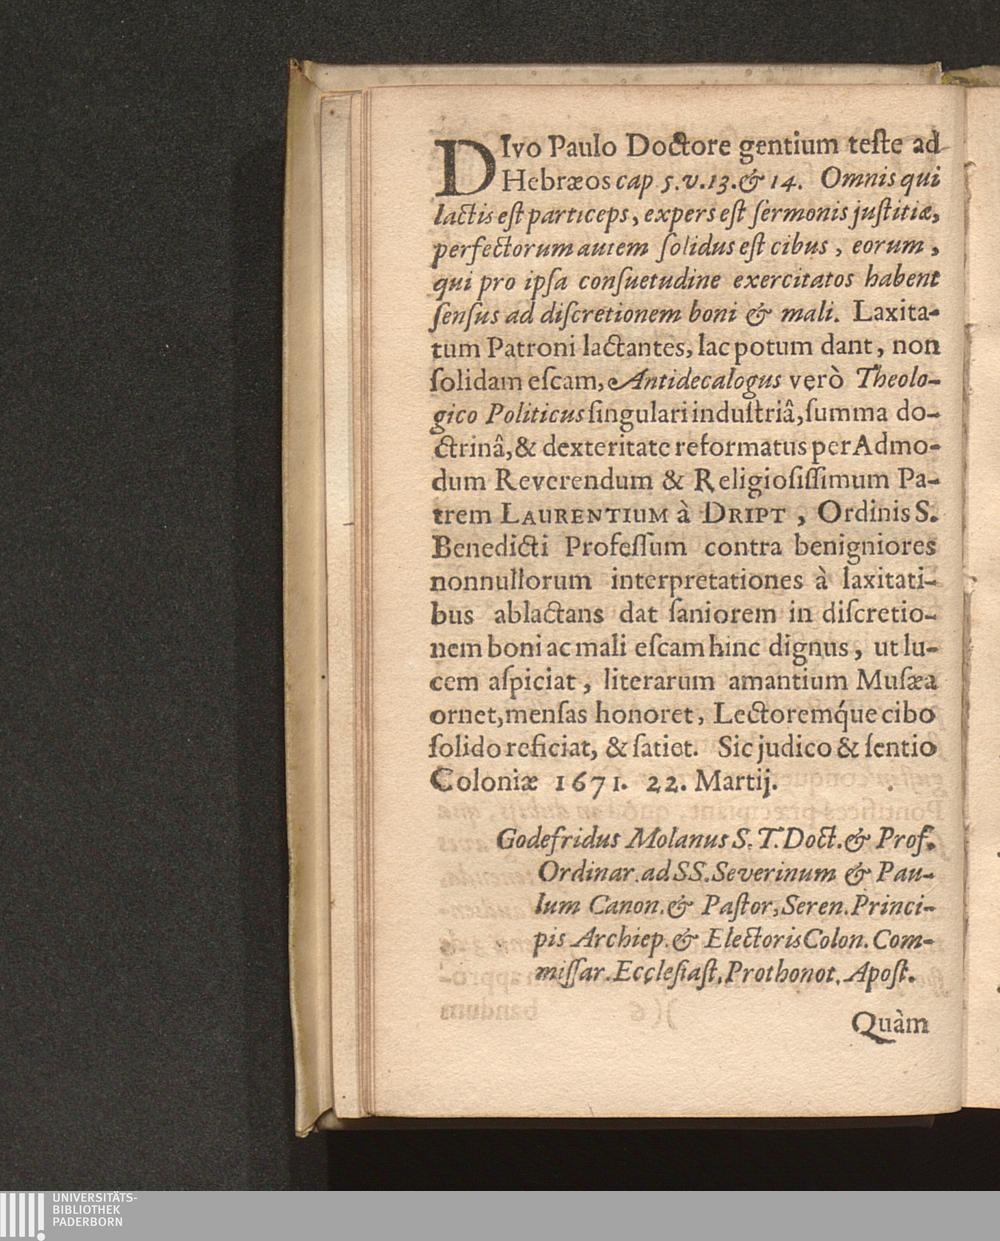 DIvo Paulo Doctore gentium teſte ad
Hebræos cap 5.v.13.& 14. Omnis qui
lactis eſt particeps, expers eſt ſermonis juſtitiæ,
perfectorum autem ſolidus eſt cibus, eorum,
qui pro ipſa conſuetudine exercitatos habent
ſenſus ad diſcretionem boni & mali. Laxita-
tum Patroni lactantes, lac potum dant, non
ſolidam eſcam, Antidecalogus verò Theolo-
gico Politicus ſingulari induſtriâ, ſumma do-
ctrinâ, & dexteritate reformatus per Admo-
dum Reverendum & Religioſiſſimum Pa-
trem LAURENTIUM à DRIPT, Ordinis S.
Benedicti Profeſſum contra benigniores
nonnullorum interpretationes à laxitati-
bus ablactans dat ſaniorem in diſcretio-
nem boni ac mali eſcam hinc dignus, ut lu-
cem aſpiciat, literarum amantium Muſæa
ornet, menſas honoret, Lectoremq́ue cibo
ſolido reficiat, & ſatiet. Sic judico & ſentio
Coloniæ 1671. 22. Martij.
Godefridus Molanus S. T. Doct. & Prof.
Ordinar. ad SS. Severinum & Pau-
lum Canon. & Paſtor, Seren. Princi-
pis Archiep. & Electoris Colon. Com-
miſſar. Eccleſiaſt, Prothonot, Apoſt.
Quàm
UNIVERSITÄTS-
BIBLIOTHEK
PADERBORN